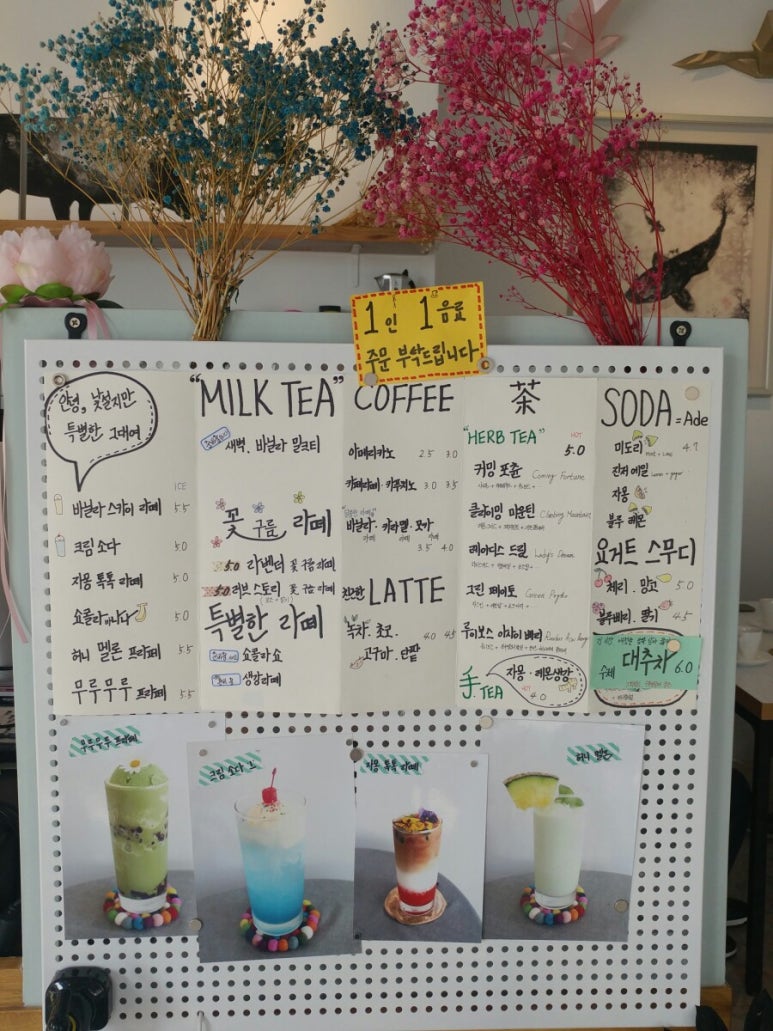 1인 1음료
주문 부탁드립니다
안녕, 낯설지만
특별한 그대여
ICE
바닐라 스카이 라떼 5.5
크림 소다 5.0
자몽 톡톡 라떼 5.0
쇼콜라 바나나 5.0
허니 멜론 프라페 5.5
무루무루 프라페 5.5
"MILK TEA"
새벽. 바닐라 밀크티
꽃 구름 라떼
5.0 라벤더 꽃 구름 라떼
5.0 러브스토리 꽃 구름 라떼
특별한 라떼
쇼콜라쇼
생강라떼
COFFEE
아메리카노 2.5 3.0
카페라떼·카푸치노 3.0 3.5
바닐라·카라멜·모카
라떼 라떼
3.5 4.0
진한 LATTE
녹차. 초코. 4.0 4.5
고구마·단팥
茶
"HERB TEA"
HOT
5.0
커밍 포춘 Coming Fortune
클라이밍 마운틴 Climbing Mountain
레이디스 드림 Lady's Dream
그린 페이토 Green Peyto
루이보스 아사이 베리
手 TEA
자몽·레몬생강
HOT
4.0
SODA = Ade
미도리 4.7
진저에일
자몽
블루 레몬
요거트 스무디
체리. 망고 5.0
블루베리. 딸기 4.5
수제 대추차 6.0
무루무루 프라페
크림 소다
자몽 톡톡 라떼
허니 멜론